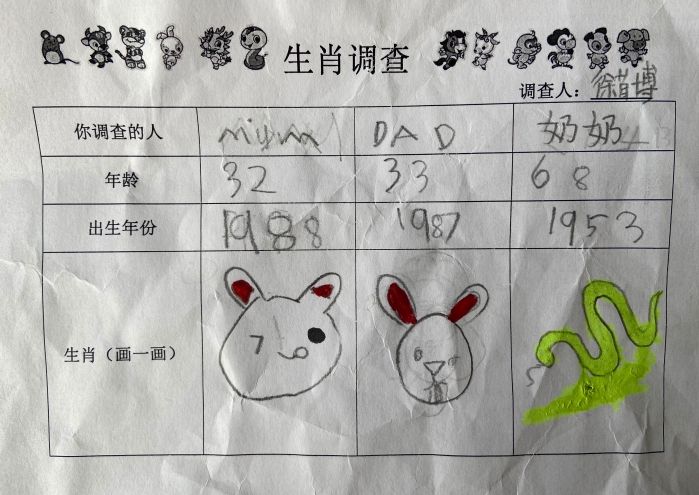 生肖调查
调查人：徐菁博
你调查的人 mium DAD 奶奶
年龄 32 33 68
出生年份 1988 1987 1953
生肖（画一画）